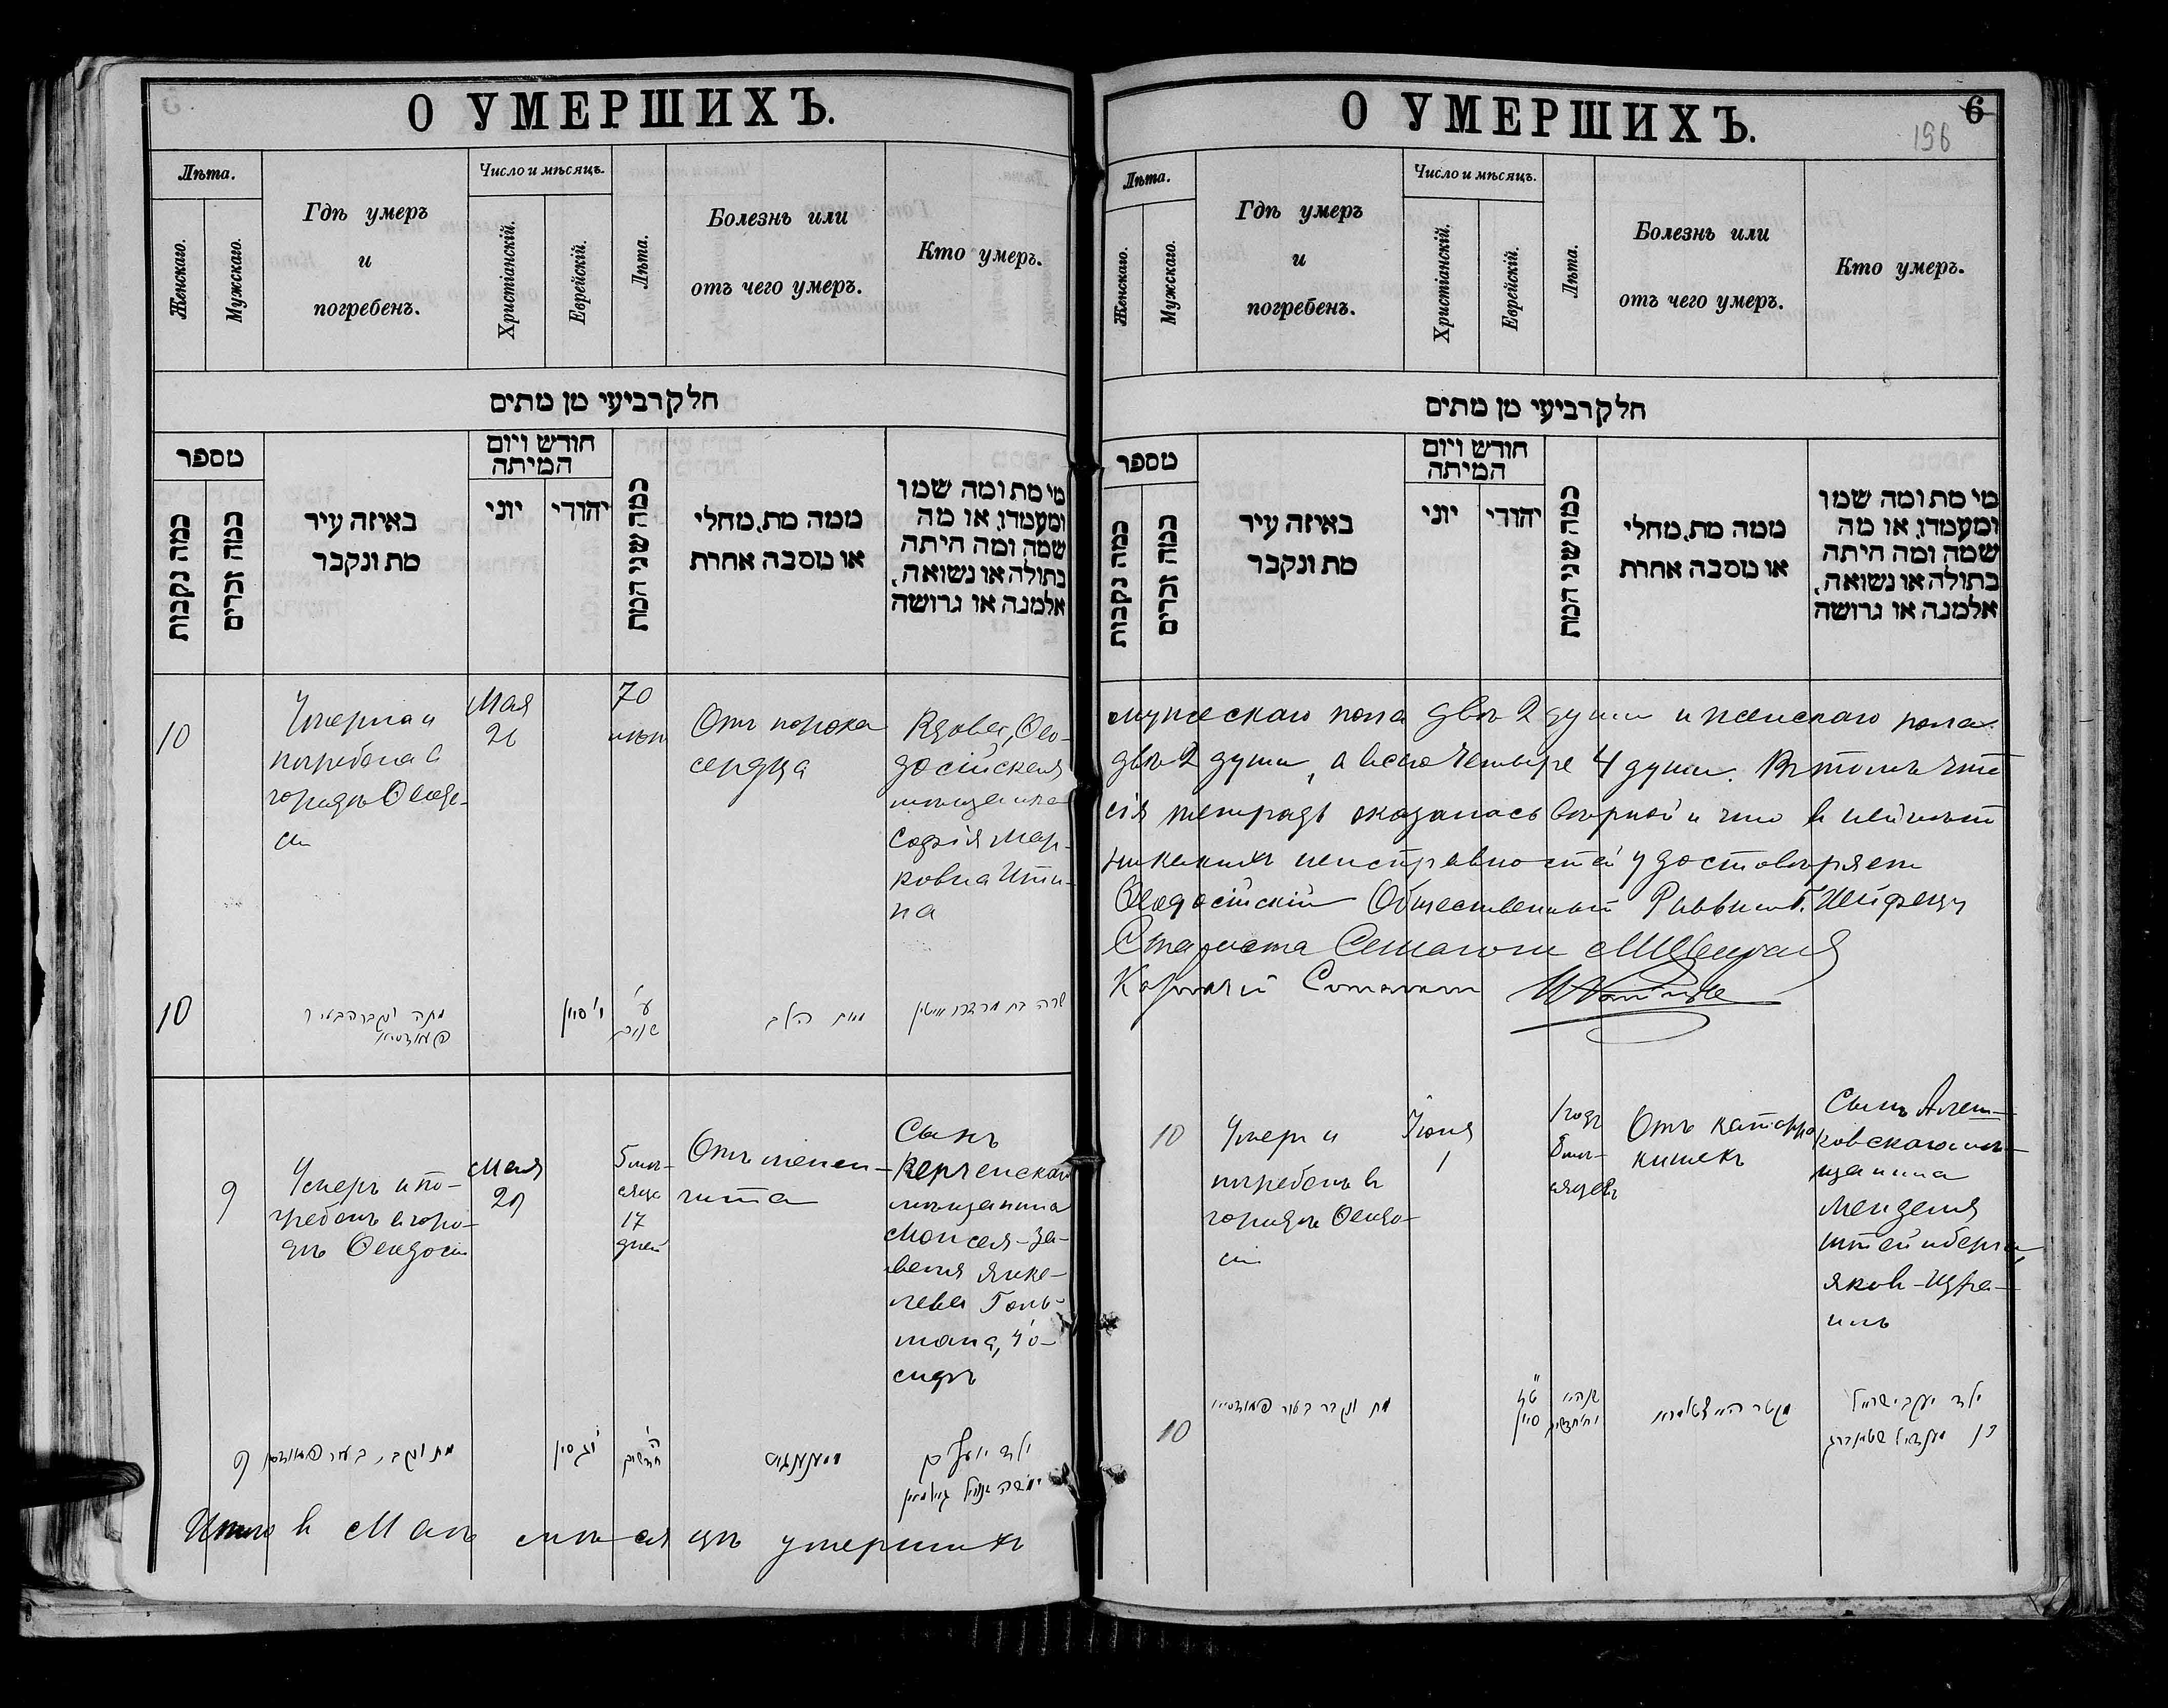 О УМЕРШИХЪ.
Лѣта.
Женскаго.
Мужскаго.
Гдѣ умеръ
и
погребенъ.
Число и мѣсяцъ.
Христіанскій.
Еврейскій.
Лѣта.
Болезнь или
отъ чего умеръ.
Кто умеръ.
חלק רביעי מן מתים
מספר
כמה נקבות
כמה זכרים
באיזה עיר
מת ונקבר
חודש ויום
המיתה
יוני
יהודי
כמה שני המת
ממה מת, מחלי
או מסבה אחרת
מי מת ומה שמו
ומעמדו, או מה
שמה ומה היתה
בתולה או נשואה,
אלמנה או גרושה
10
Умерла и
погребена в
городѣ Ѳеодо-
сіи
Мая
26
70
лѣтъ
Отъ порока
сердца
Вдова, Ѳео-
досійская
мѣщанка
Софія Мар-
ковна Ити-
на
10
מתה ונקברה בעיר
סיון
ע'
שנים
הלב
שרה בת
9
Умеръ и по-
гребенъ в горо-
дѣ Ѳеодосіи
Мая
29
5 мѣ-
сяца
17
дней
Отъ менен-
гита
Сынъ
Керченскаго
мѣщанина
Моисея-За-
веля Янке-
лева Голь-
мана, Іо-
сифъ
9
מת ונקבר בעיר
סיון
ה'
חדשים
ילד
Итого в Маѣ мѣсяцѣ умершихъ
О УМЕРШИХЪ.
6
196
Лѣта.
Женскаго.
Мужскаго.
Гдѣ умеръ
и
погребенъ.
Число и мѣсяцъ.
Христіанскій.
Еврейскій.
Лѣта.
Болезнь или
отъ чего умеръ.
Кто умеръ.
חלק רביעי מן מתים
מספר
כמה נקבות
כמה זכרים
באיזה עיר
מת ונקבר
חודש ויום
המיתה
יוני
יהודי
כמה שני המת
ממה מת, מחלי
או מסבה אחרת
מי מת ומה שמו
ומעמדו, או מה
שמה ומה היתה
בתולה או נשואה,
אלמנה או גרושה
мужескаго пола двѣ 2 души и женскаго пола
двѣ 2 души, а всего четыре 4 души. Въ томъ что
сія тетрадь оказалась вѣрной и что в ней нѣтъ
никакихъ неисправностей удостовѣряетъ
Ѳеодосійскій Общественный Раввинъ
Староста Синагоги
Казначей
10
Умеръ и
погребенъ в
городѣ Ѳеодо-
сіи
Іюня
1
1 годъ
8 мѣ-
сяцевъ
Отъ катарра
кишекъ
Сынъ Алеш-
ковскаго мѣ-
щанина
Менделя
Штейнберга,
Яковъ-Изра-
иль
10
מת ונקבר בעיר
ט"ז
סיון
ילד יעקב ישראל
בן מענדיל שטיינברג